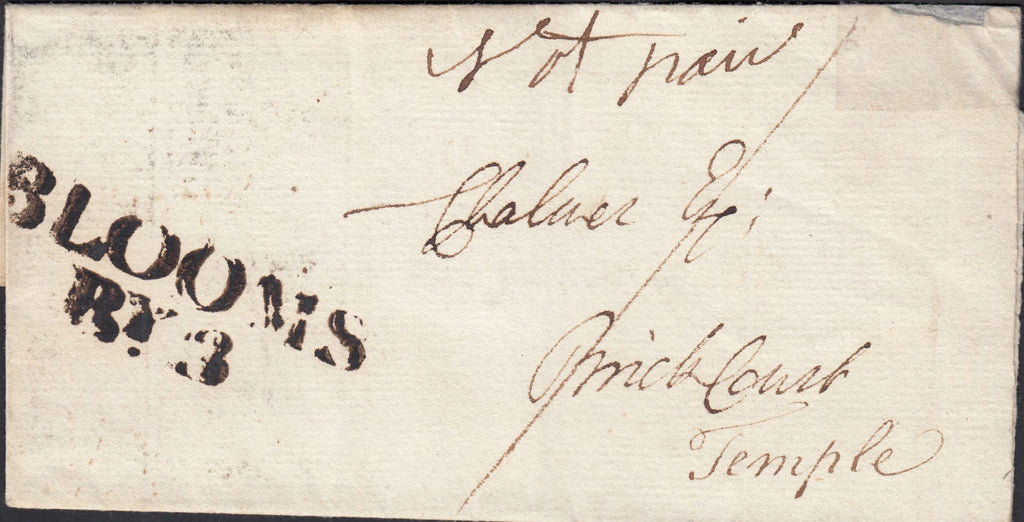 Not paid
Chalmer Esq:
Brick Court
Temple
BLOOMS
BY. 3